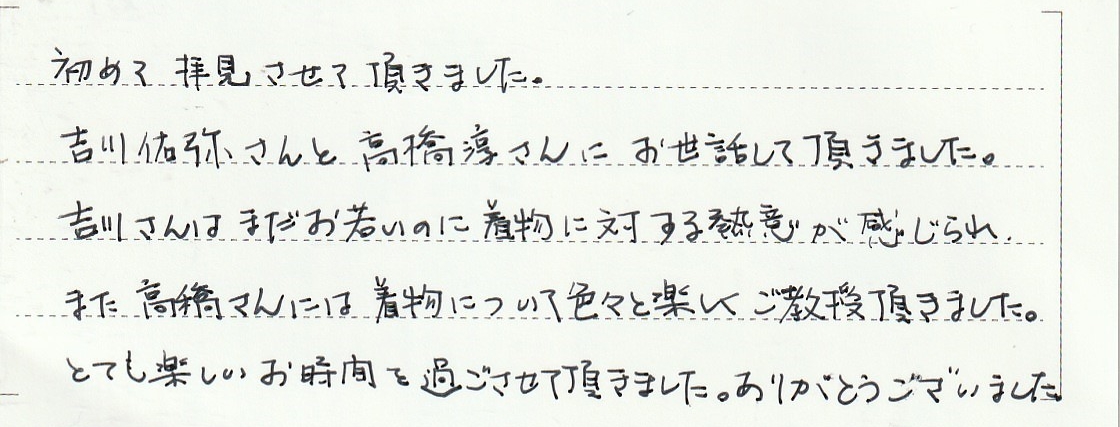 初めて拝見させて頂きました。
吉川佑弥さんと高橋淳さんにお世話して頂きました。
吉川さんはまだお若いのに着物に対する熱意が感じられ、
また高橋さんには着物について色々と楽しくご教授頂きました。
とても楽しいお時間を過ごさせて頂きました。ありがとうございました